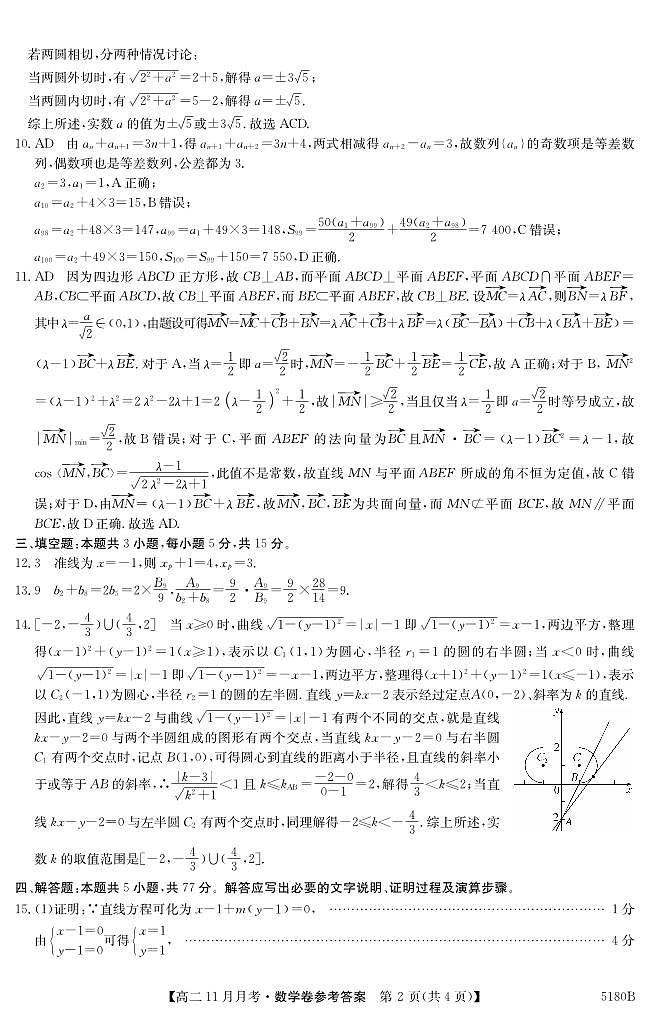 若两圆相切,分两种情况讨论:
当两圆外切时,有 √(2²+a²)=2+5,解得 a=±3√5;
当两圆内切时,有 √(2²+a²)=5−2,解得 a=±√5.
综上所述,实数 a 的值为±√5或±3√5. 故选 ACD.
10. AD 由 aₙ+aₙ₊₁=3n+1,得 aₙ₊₁+aₙ₊₂=3n+4,两式相减得 aₙ₊₂−aₙ=3,故数列{aₙ}的奇数项是等差数
列,偶数项也是等差数列,公差都为 3.
a₂=3,a₁=1,A 正确;
a₁₀=a₂+4×3=15,B 错误;
a₉₈=a₂+48×3=147,a₉₉=a₁+49×3=148,S₉₉=50(a₁+a₉₉)/2+49(a₂+a₉₈)/2=7 400,C 错误;
a₁₀₀=a₂+49×3=150,S₁₀₀=S₉₉+150=7 550,D 正确.
11. AD 因为四边形 ABCD 正方形,故 CB⊥AB,而平面 ABCD⊥平面 ABEF,平面 ABCD∩平面 ABEF=
AB,CB⊂平面 ABCD,故 CB⊥平面 ABEF,而 BE⊂平面 ABEF,故 CB⊥BE. 设MC→=λAC→,则BN→=λBF→,
其中 λ=a/√2∈(0,1),由题设可得MN→=MC→+CB→+BN→=λAC→+CB→+λBF→=λ(BC→−BA→)+CB→+λ(BA→+BE→)=
(λ−1)BC→+λBE→. 对于 A,当 λ=1/2 即 a=√2/2时,MN→=−1/2BC→+1/2BE→=1/2CE→,故 A 正确;对于 B,MN→²
=(λ−1)²+λ²=2λ²−2λ+1=2(λ−1/2)²+1/2,故|MN→|≥√2/2,当且仅当 λ=1/2即 a=√2/2时等号成立,故
|MN→|min=√2/2,故 B 错误;对于 C,平面 ABEF 的法向量为BC→且MN→·BC→=(λ−1)BC→²=λ−1,故
cos〈MN→,BC→〉=(λ−1)/√(2λ²−2λ+1),此值不是常数,故直线 MN 与平面 ABEF 所成的角不恒为定值,故 C 错
误;对于 D,由MN→=(λ−1)BC→+λBE→,故MN→,BC→,BE→为共面向量,而 MN⊄平面 BCE,故 MN∥平面
BCE,故 D 正确. 故选 AD.
三、填空题:本题共 3 小题,每小题 5 分,共 15 分。
12. 3 准线为 x=−1,则 x_P+1=4,x_P=3.
13. 9 b₂+b₈=2b₅=2×B₉/9,A₉/(b₂+b₈)=9/2·A₉/B₉=9/2×28/14=9.
14. [−2,−4/3)∪(4/3,2] 当 x≥0 时,曲线 √(1−(y−1)²)=|x|−1 即 √(1−(y−1)²)=x−1,两边平方,整理
得(x−1)²+(y−1)²=1(x≥1),表示以 C₁(1,1)为圆心,半径 r₁=1 的圆的右半圆;当 x<0 时,曲线
√(1−(y−1)²)=|x|−1即 √(1−(y−1)²)=−x−1,两边平方,整理得(x+1)²+(y−1)²=1(x≤−1),表示
以 C₂(−1,1)为圆心,半径 r₂=1 的圆的左半圆. 直线 y=kx−2 表示经过定点A(0,−2)、斜率为 k 的直线.
因此,直线 y=kx−2 与曲线 √(1−(y−1)²)=|x|−1 有两个不同的交点,就是直线
kx−y−2=0 与两个半圆组成的图形有两个交点,当直线 kx−y−2=0 与右半圆
C₁ 有两个交点时,记点 B(1,0),可得圆心到直线的距离小于半径,且直线的斜率小
于或等于 AB 的斜率,∴|k−3|/√(k²+1)<1 且 k≤k_AB=(−2−0)/(0−1)=2,解得 4/3<k≤2;当直
线 kx−y−2=0 与左半圆 C₂ 有两个交点时,同理解得−2≤k<−4/3. 综上所述,实
数 k 的取值范围是[−2,−4/3)∪(4/3,2].
y
2
C₂
C
B
0
x
2
A
四、解答题:本题共 5 小题,共 77 分。解答应写出必要的文字说明、证明过程及演算步骤。
15. (1)证明:∵直线方程可化为 x−1+m(y−1)=0, …… 1 分
由{x−1=0 y−1=0可得{x=1 y=1, …… 4 分
【高二 11 月月考·数学卷参考答案 第 2 页(共 4 页)】 5180B